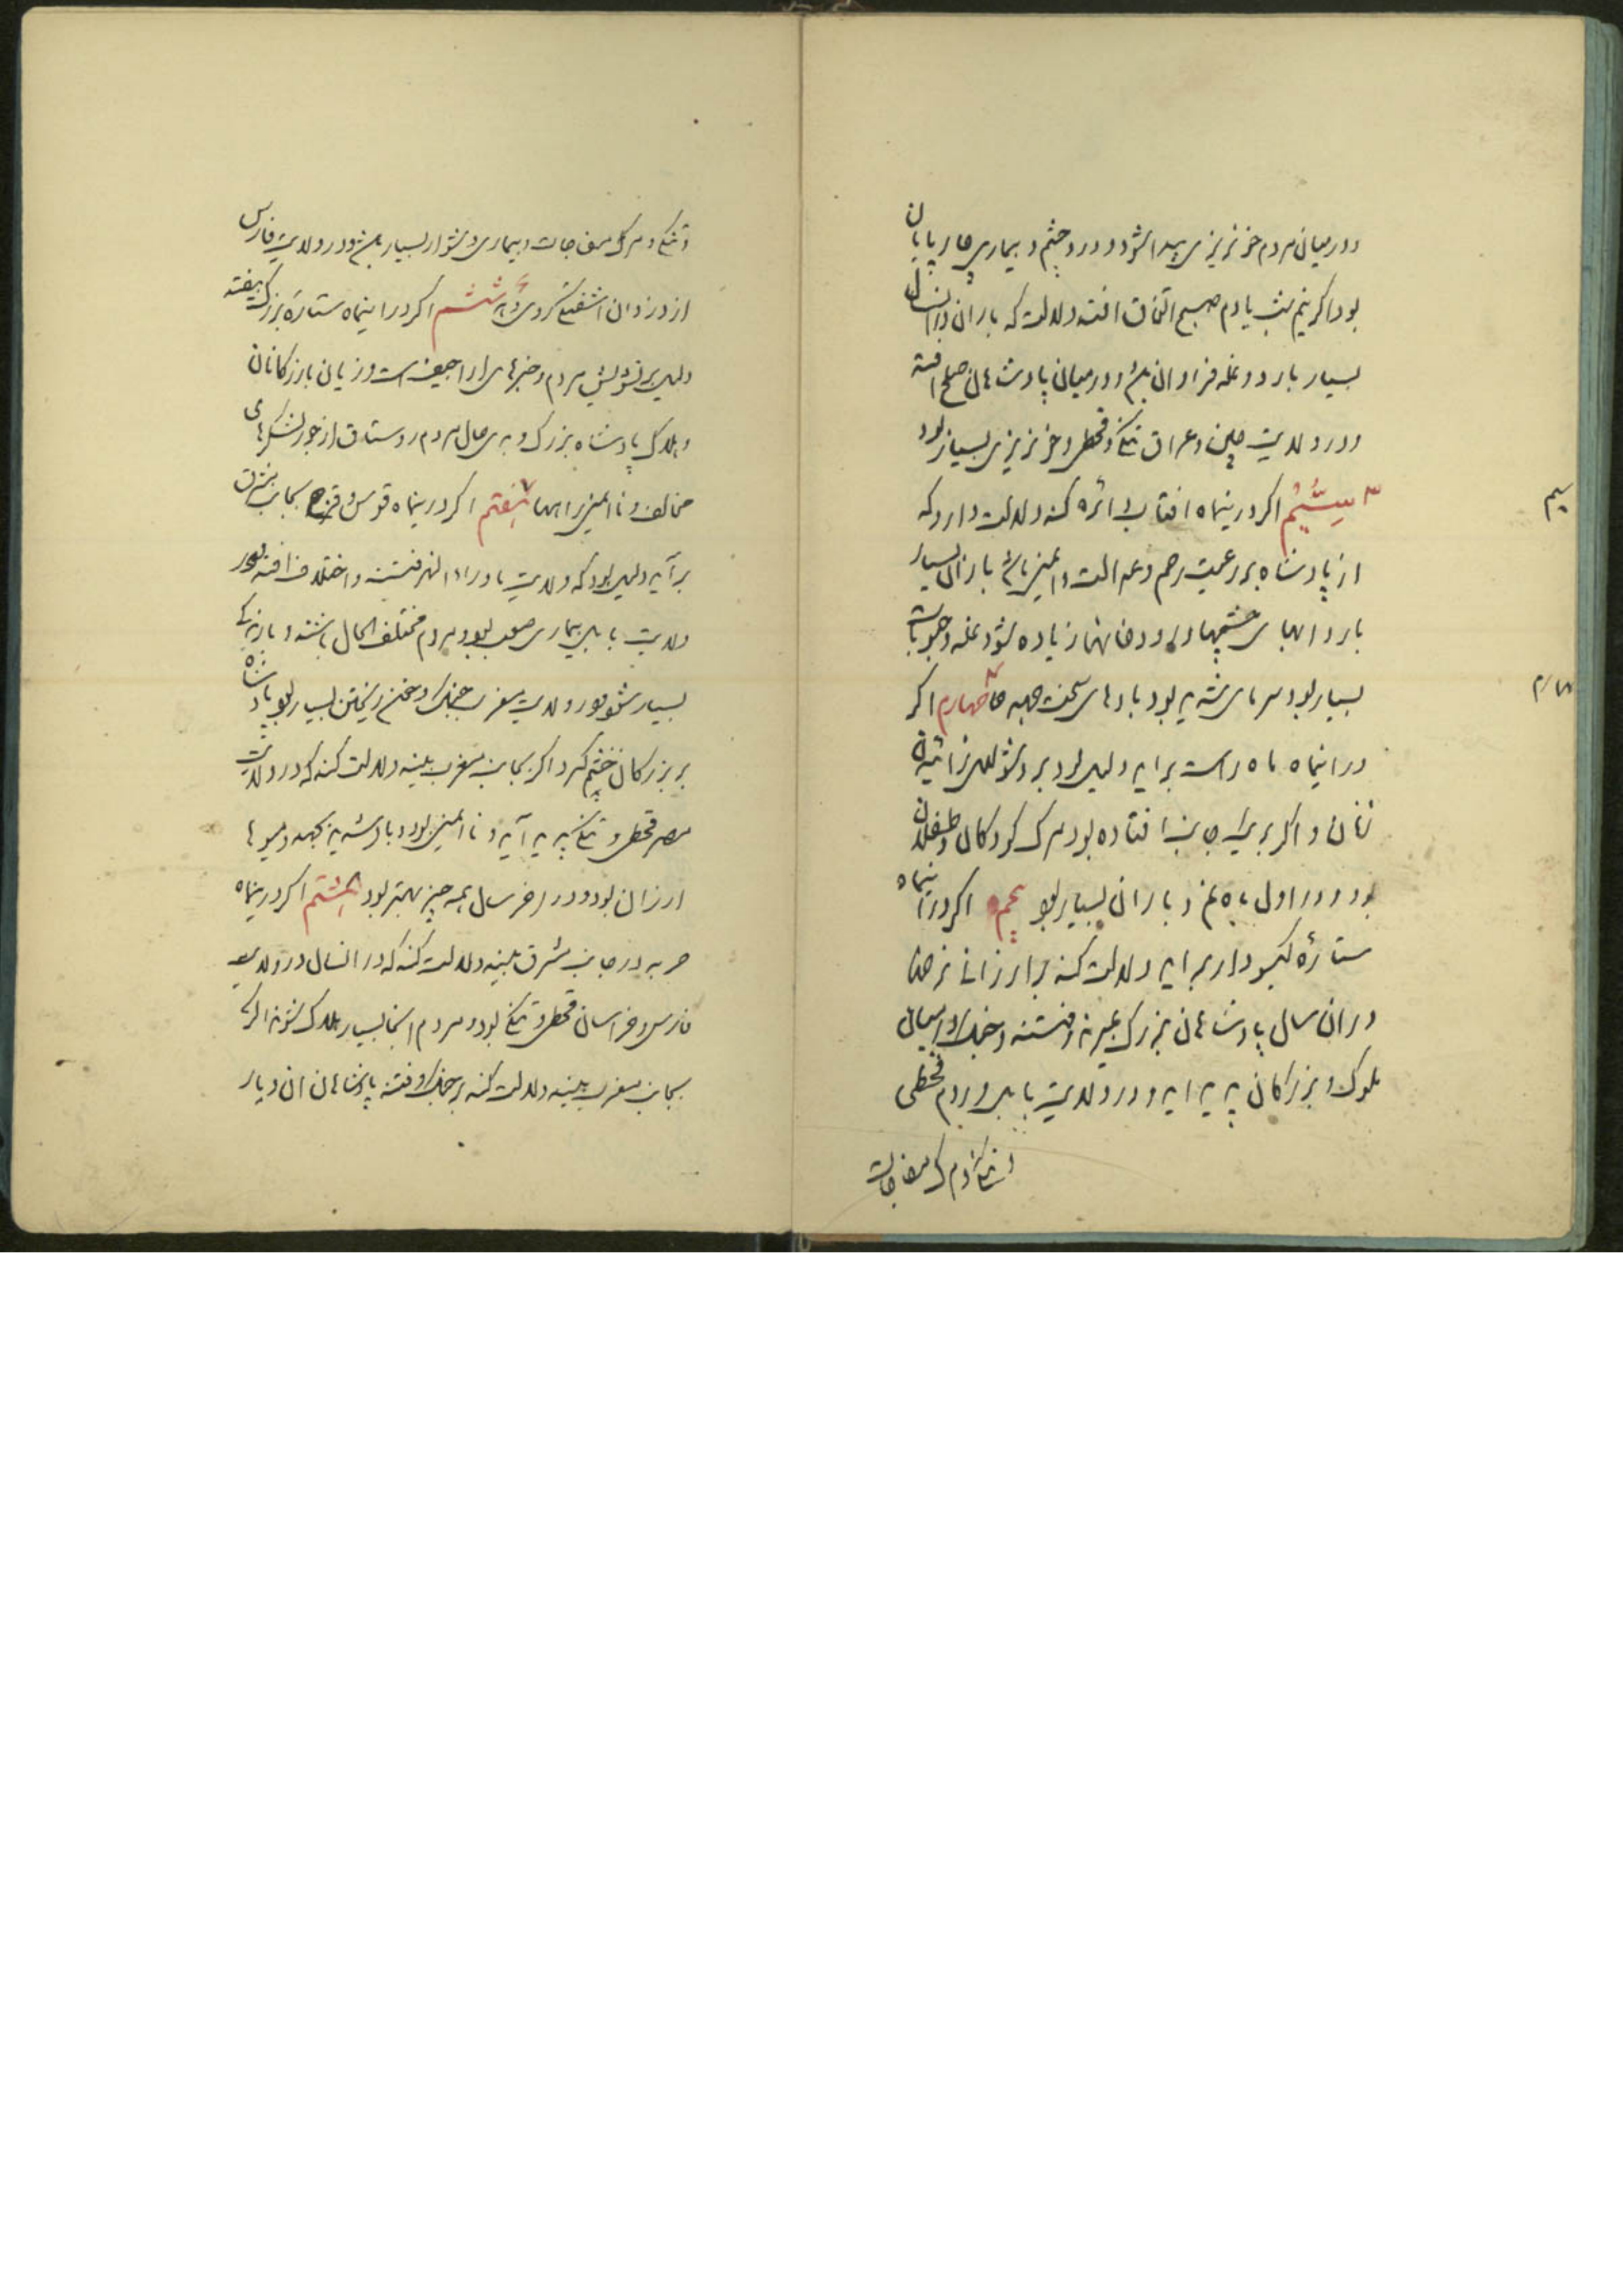 ودر میان مردم خونریزی پیدا شود و درد چشم و بیماری چارپایان
بود اگر نیم شب یا دم صبح اتفاق افتد دلالت که باران در انسال
بسیار بارد و غله فراوان شود و در میان پادشاهان صلح افتد
و در ولایت چین و عراق تنگی و قحطی و خونریزی بسیار بود
سیم
۳ سیّیم اگر درینماه افتاب دائره کند دلالت دارد که
از پادشاه بر رعیت رحم و عدالت و ایمنی باشد باران بسیار
بارد ابهای چشمها و رودخانها زیاده شود غله و حبوبات
بسیار بود سرمای شدید بود بادهای سخت جهد ۴ چهارم اگر
چهارم
در اینماه ماه راست براید دلیل بود بر دشوار زائیدن
زنان و اگر بریک جانب افتاده بود مرگ کودکان و طفلان
بود و در اول ماه نم و باران بسیار بود پنجم اگر در اینماه
ستاره گیسودار براید دلالت کند بر ارزانی نرخها
در ان سال پادشاهان بزرگ بمیرند و فتنه و جنگ در میان
ملوک و بزرگان پدید اید و در ولایت بابل و روم قحطی
و تنگی و مرگ مفاجات
و تنگی و مرگ مفاجات و بیماری دشوار بسیار شود و در ولایت فارس
از دزدان اشفتگی کردی ۶ ششم اگر در اینماه ستاره بزرگ بیفتد
دلیل بر تشویش مردم و خبرهای اراجیف است و زیان بازرگانان
و هلاک پادشاه بزرگ و بدی حال مردم روستاق از جور لشکرهای
مخالف و ناایمنی راهها ۷ هفتم اگر درینماه قوس و قزح بجانب مشرق
برآید دلیل بود که ولایت ماوراءالنهر فتنه و اختلاف افتد و در
ولایت بابل بیماری صعب بود و مردم مختلف الحال باشند و
بسیار شود و در ولایت مغرب جنگ و خون ریختن بسیار بود پادشاه
بر بزرگان خشم گیرد اگر بجانب مغرب بیند دلالت کند که در ولایت
مصر قحطی و تنگی پدید آید و ناایمنی بود و باد شدید بجهد و میوها
ارزان بود و در اخر سال همه چیز بهتر بود ۸ هشتم اگر درینماه
حربه در جانب مشرق بیند دلالت کند که در انسال در ولایت
فارس و خراسان قحطی و تنگی بود و مردم انجا بسیار هلاک شوند اگر
بجانب مغرب بیند دلالت کند بر جنگ و فتنه پادشاهان ان دیار